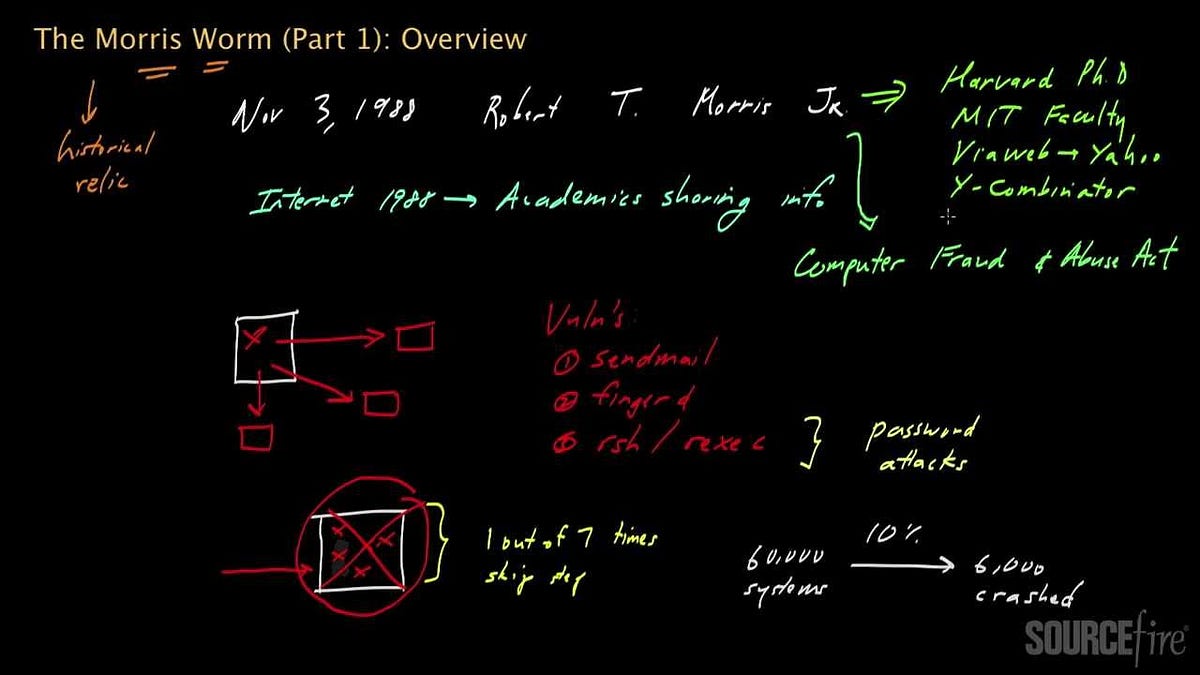 The Morris Worm (Part 1): Overview
historical
relic
Nov 3, 1988 Robert T. Morris Jr.
Harvard Ph.D
MIT Faculty
Viaweb → Yahoo
Y-Combinator
Internet 1988 → Academics sharing info
Computer Fraud & Abuse Act
Vuln's:
① sendmail
② fingerd
③ rsh / rexec
password
attacks
1 out of 7 times
skip step
60,000
systems
10%
6,000
crashed
SOURCEfire®